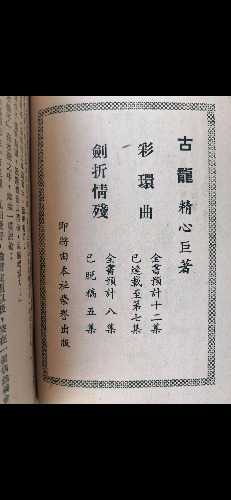 古龍精心巨著
彩環曲
全書預計十二集
已連載至第七集
劍折情殘
全書預計八集
已脫稿五集
即將由本社榮譽出版